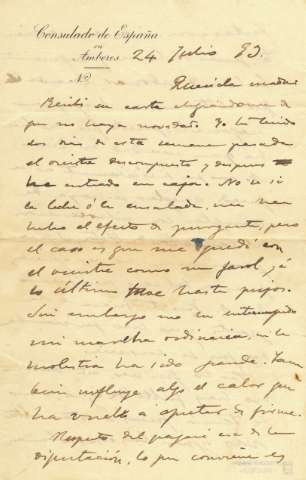 Consulado de España
en
Amberes
24 Julio 83.
Nº
Querida madre
Recibí su carta alegrándome de
que no haya novedad. Yo he tenido
dos días de esta semana pasada
el vientre descompuesto y después
he entrado en caja. No sé si
la leche ó la ensalada, me han
hecho el efecto de purgante, pero
el caso es que me quedé con
el vientre como un farol, y á
lo último hasta pujos.
Sin embargo no he interrumpido
mi marcha ordinaria, ni la
molestia ha sido grande. Tam
bien influye algo el calor que
ha vuelto a apretar de firme.
Respecto del pagaré de la
diputación, lo que conviene es